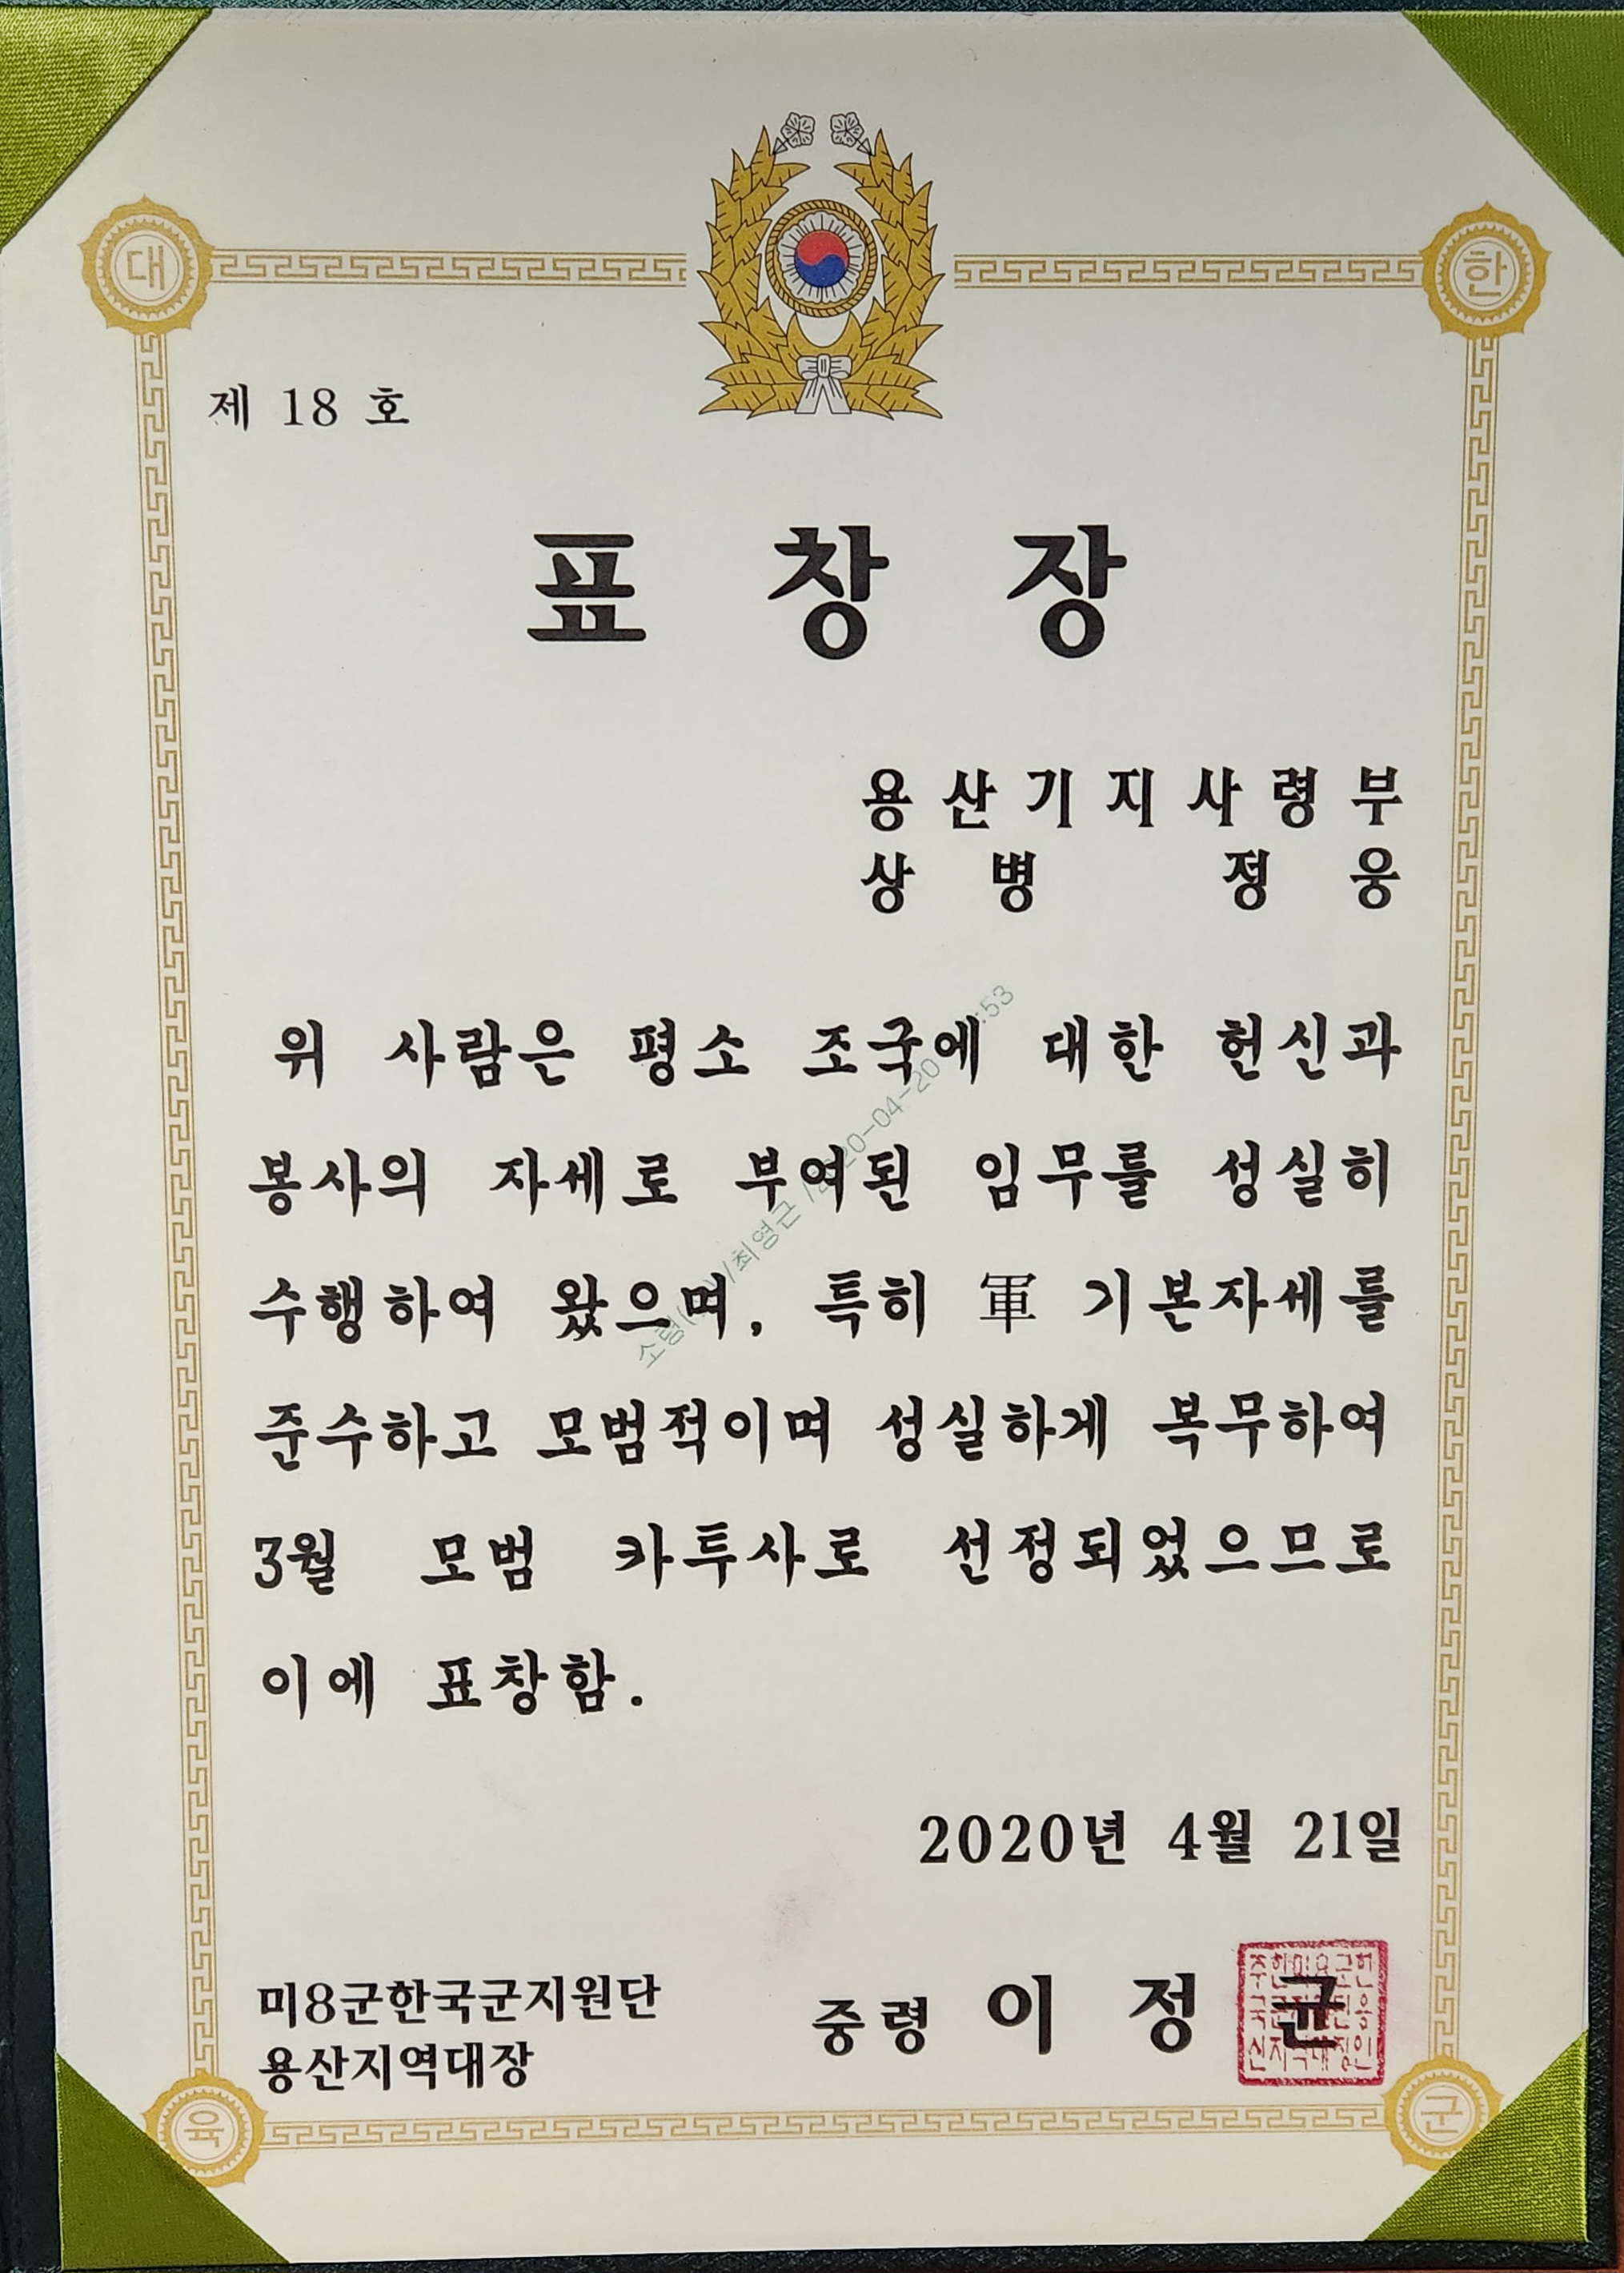 대 한
제 18 호
표 창 장
용산기지사령부
상 병 정 웅
위 사람은 평소 조국에 대한 헌신과
봉사의 자세로 부여된 임무를 성실히
수행하여 왔으며, 특히 軍 기본자세를
준수하고 모범적이며 성실하게 복무하여
3월 모범 카투사로 선정되었으므로
이에 표창함.
2020년 4월 21일
미8군한국군지원단
용산지역대장
중령 이 정 균
육 군